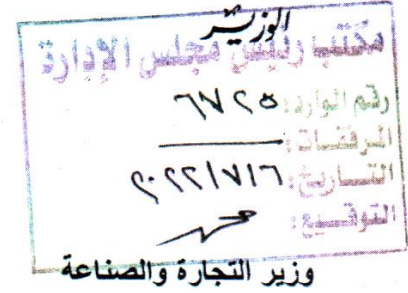 الوزير
مكتب رئيس مجلس الإدارة
رقم الوارد: ٦٧٢٥
المرفقات:
التاريخ: ٢٠٢٢/٧/٦
التوقيع:
وزير التجارة والصناعة